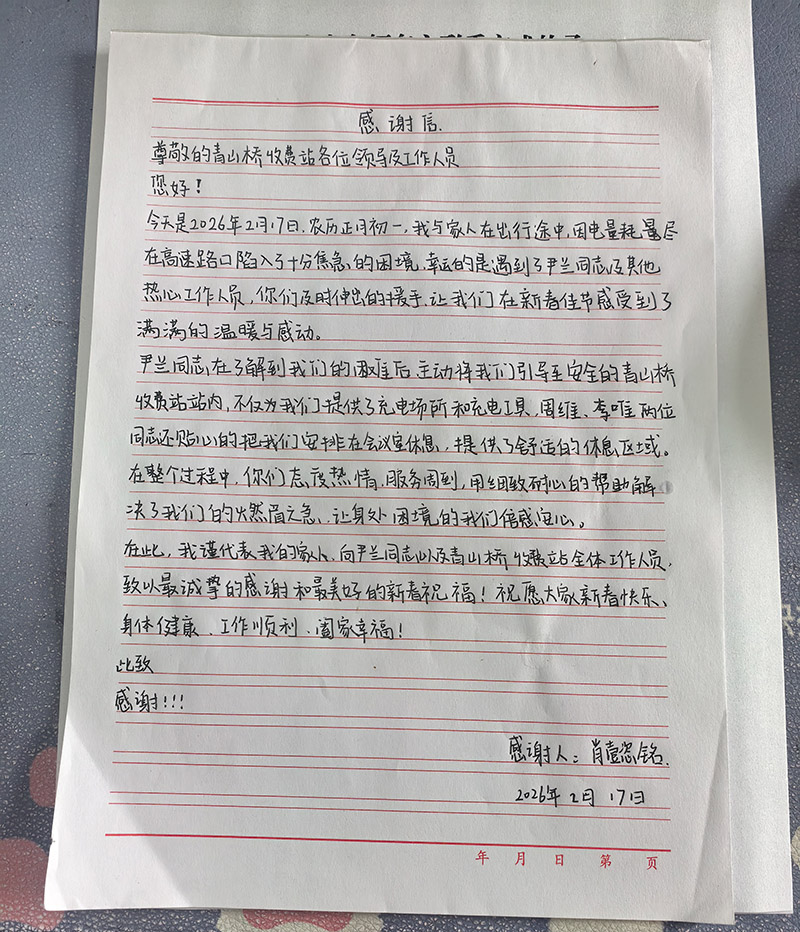 感谢信.
尊敬的青山桥收费站各位领导及工作人员
您好！
今天是2026年2月17日.农历正月初一,我与家人在出行途中,因电量耗量尽
在高速路口陷入了十分焦急的困境,幸运的是遇到了尹兰同志及其他
热心工作人员,你们及时伸出的援手.让我们在新春佳节感受到了
满满的温暖与感动。
尹兰同志在了解到我们的困难后.主动将我们引导至安全的青山桥
收费站站内,不仅为我们提供了充电场所和充电工具,周维、李唯两位
同志还贴心的把我们安排在会议室休息,提供了舒适的休息区域。
在整个过程中,你们态度热情.服务周到,用细致耐心的帮助解
决了我们的火然眉之急、让身处困境的我们倍感安心。
在此,我谨代表我的家人、向尹兰同志以及青山桥收费站全体工作人员,
致以最诚挚的感谢和最美好的新春祝福！祝愿大家新春快乐、
身体健康、工作顺利、阖家幸福！
此致
感谢!!!
感谢人：肖壹恣铭.
2026年2月17日
年 月 日 第 页